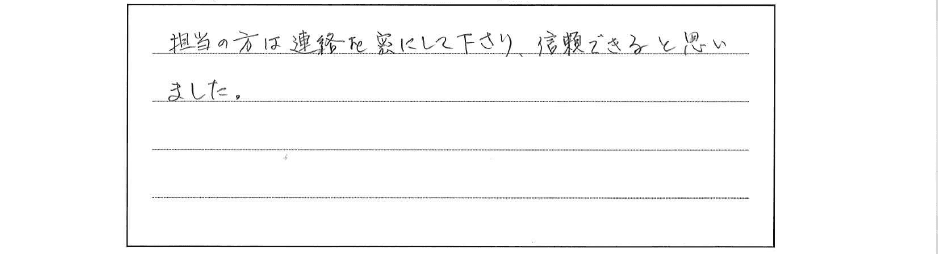 担当の方は連絡を密にして下さり、信頼できると思い
ました。